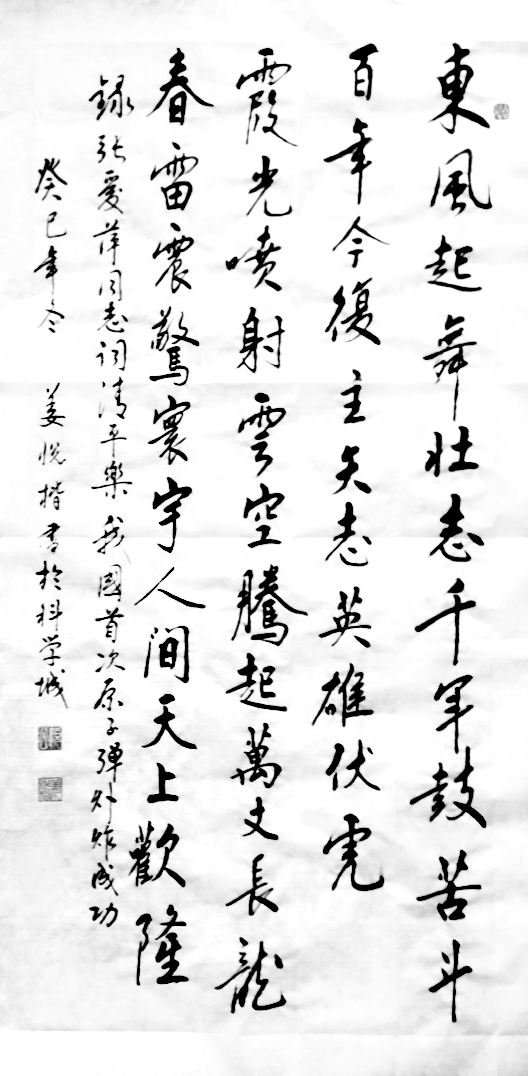 東風起舞壯志千軍鼓苦斗
百年今復主矢志英雄伏虎
霞光噴射雲空騰起萬丈長龍
春雷震驚寰宇人間天上歡隆
録張愛萍同志詞清平樂我國首次原子彈爆炸成功
癸巳年冬 姜悦楷書於科学城